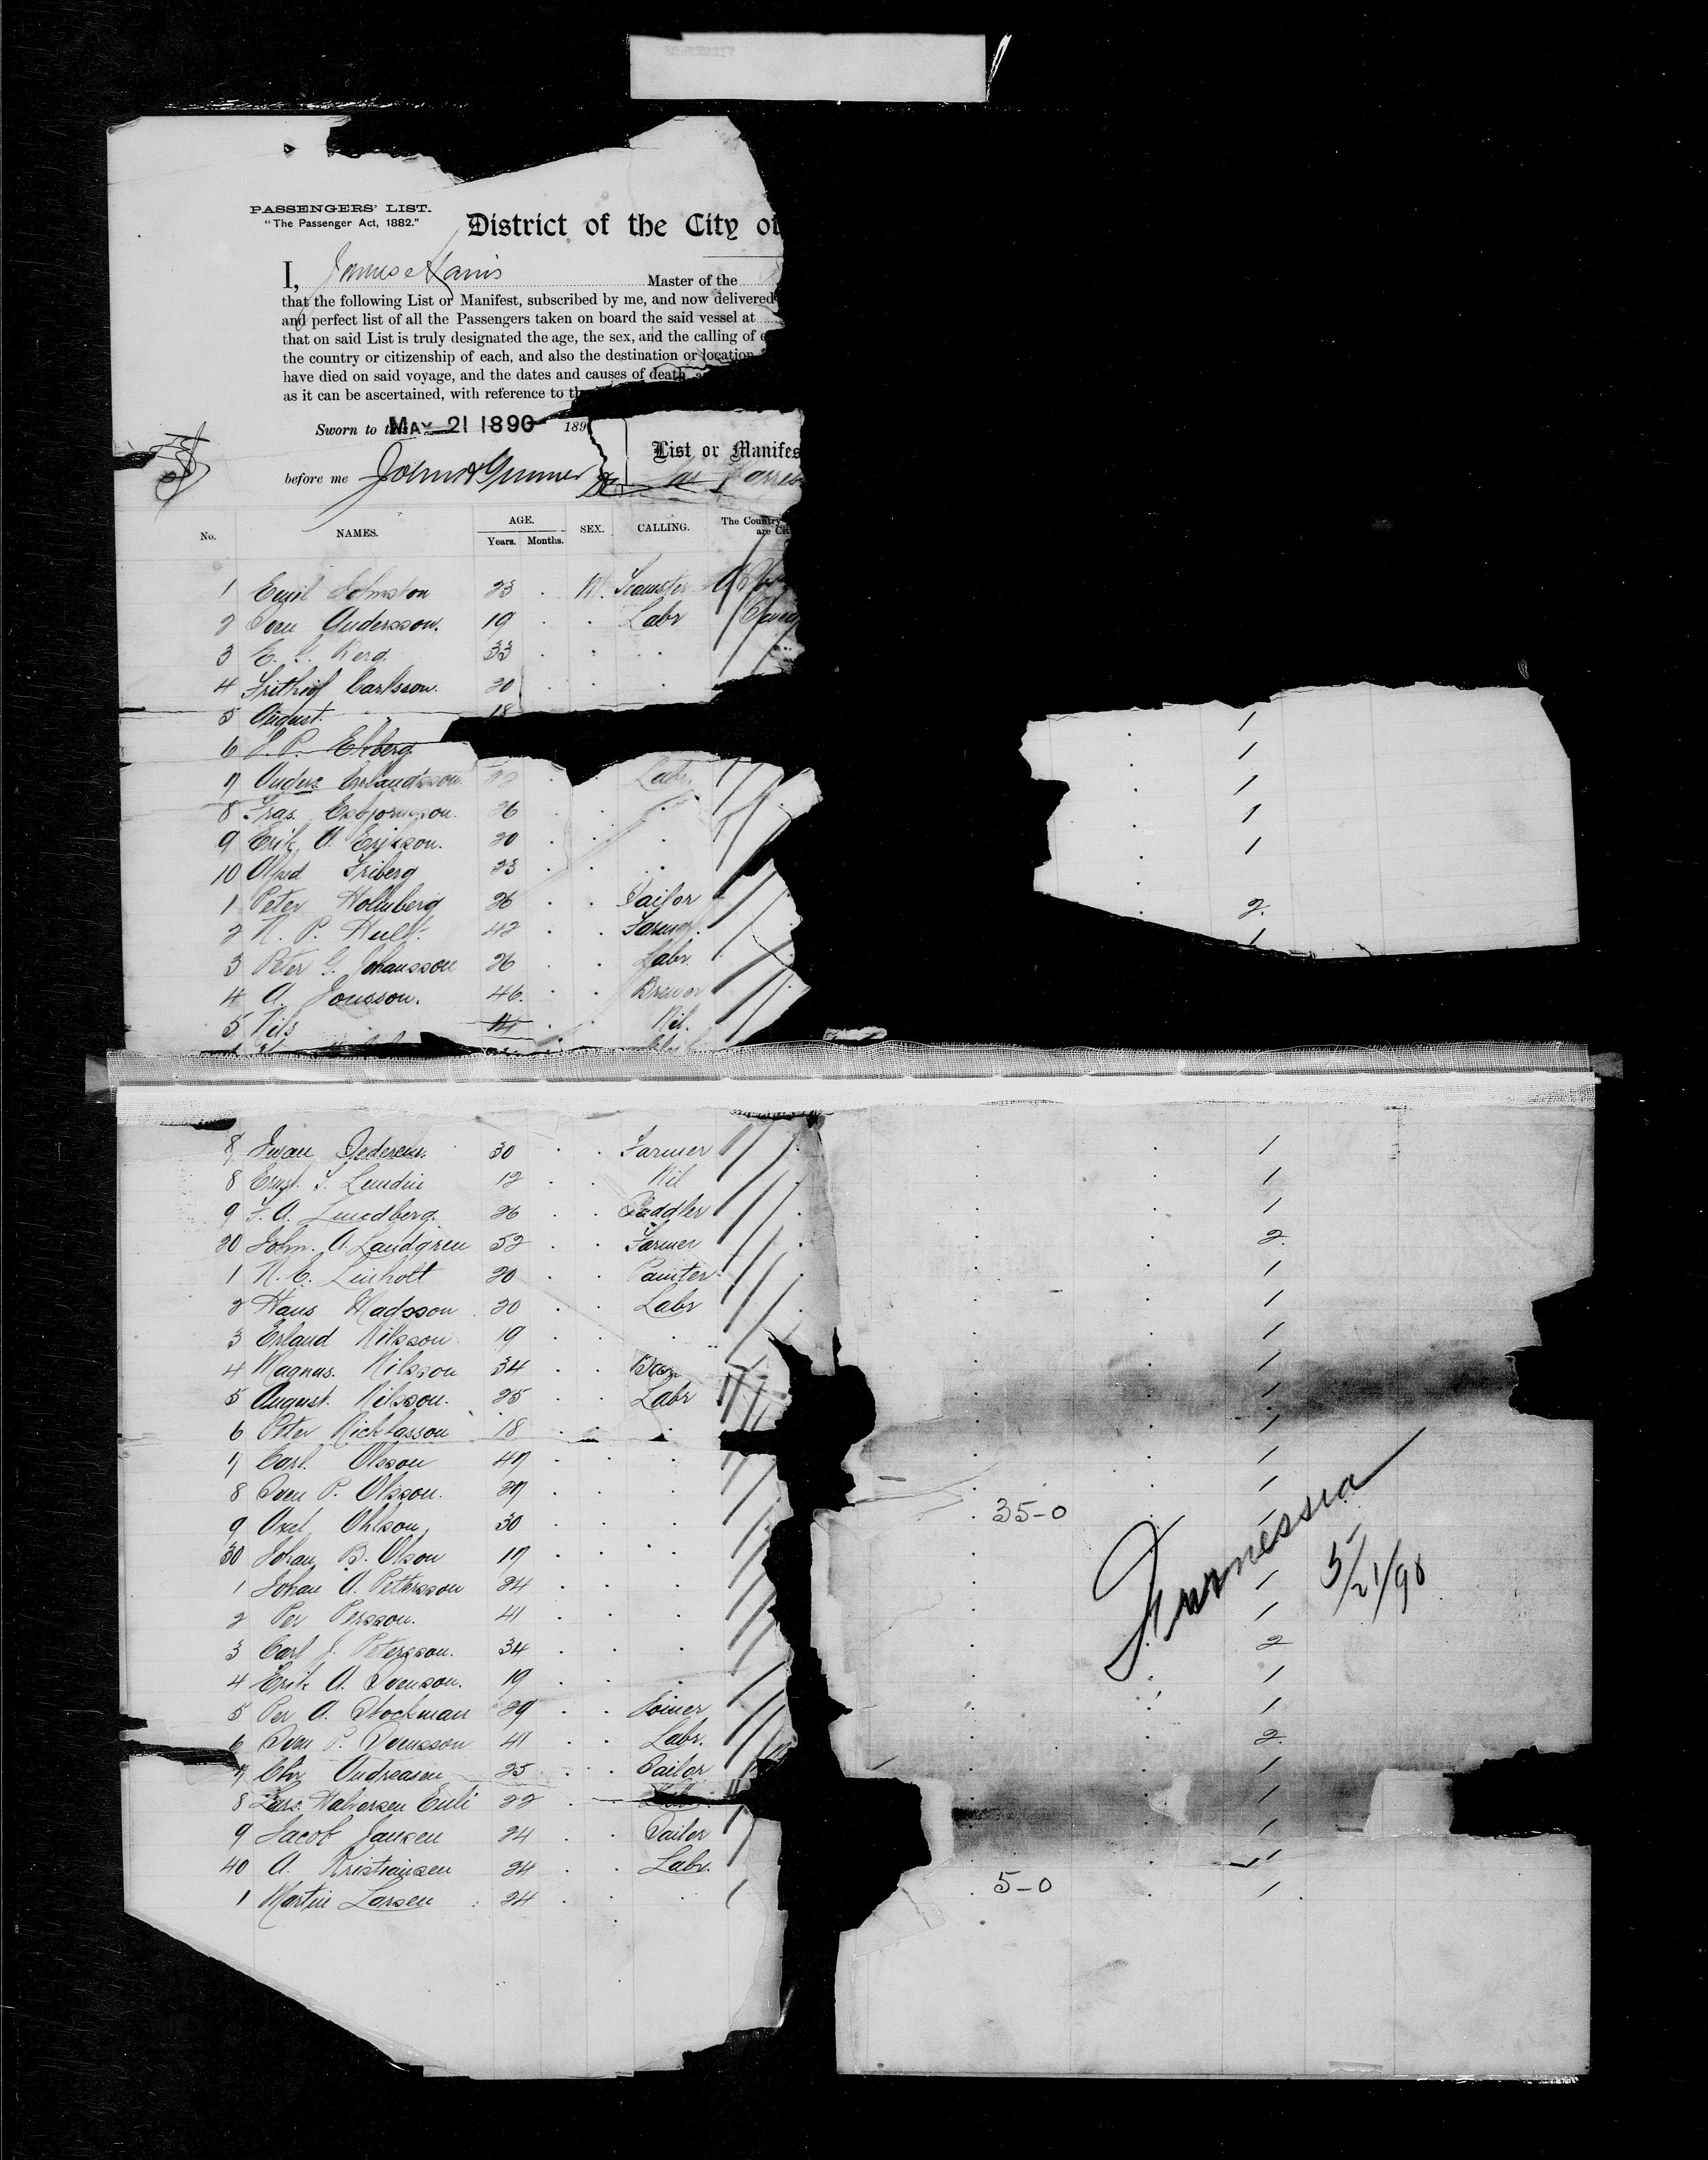 PASSENGERS' LIST.
"The Passenger Act, 1882."
District of the City of
I, James Harris Master of the
that the following List or Manifest, subscribed by me, and now delivered
and perfect list of all the Passengers taken on board the said vessel at
that on said List is truly designated the age, the sex, and the calling of
the country or citizenship of each, and also the destination or location
have died on said voyage, and the dates and causes of death,
as it can be ascertained, with reference to
Sworn to this MAY 21 1890 189
before me
List or Manifes
No. NAMES. AGE. Years. Months. SEX. CALLING. The Country are Cit
1 Emil Johnston 23 M. Teamster
2 Sven Andersson. 19 Labr
3 Berg. 33
4 Frithiof Carlsson. 20 1
5 August 18 1
6 Ekberg 1
7 Anders Erlandsson 22 Labr. 1
8 Fras. Esbjornsson. 26 1
9 Erik A. Erikson. 20
10 Alfred Friberg 23
1 Peter Holmberg 26 Tailor 2.
2 N. P. Hult. 42 Farmer. 1
3 Peter G. Johansson 26 Labr.
4 A. Jonsson. 46. Brewer
5 Nils 14 Nil.
7 Swan Pedersen. 30 Farmer 1
8 Ernst. Lundin 12 Nil 1
9 F. A. Lundberg. 26 Saddler 1
20 John. A. Landgren 52 Farmer 2.
1 N. C. Linholt 20 Painter 1
2 Hans Madsson 20 Labr 1
3 Erland Nilsson 19 1
4 Magnus. Nilsson 34 1
5 August. Nilsson. 25 Labr 1
6 Peter Nicklasson 18 1
7 Carl Olsson 47 1
8 Sven P. Olsson. 27 1
9 Axel Ohlson 30 35-0 1
30 Johan B. Olson 17
1 Johan A. Pettersson 24 1
2 Per Persson. 41 1
3 Carl J. Petersson. 34 2
4 Erik A. Svenson. 19 1
5 Per A. Stockman 29 Joiner 1
6 Sven P. Svensson 41 Labr. 2.
7 Chr Andreasen 25 Tailor 1
8 Lars. Halvorsen 22 1
9 Jacob Jansen 24 Tailor 1
40 A. Kristiansen 24 Labr. 1
1 Martin Larsen 24 5-0 1
Furnessia
5/21/90